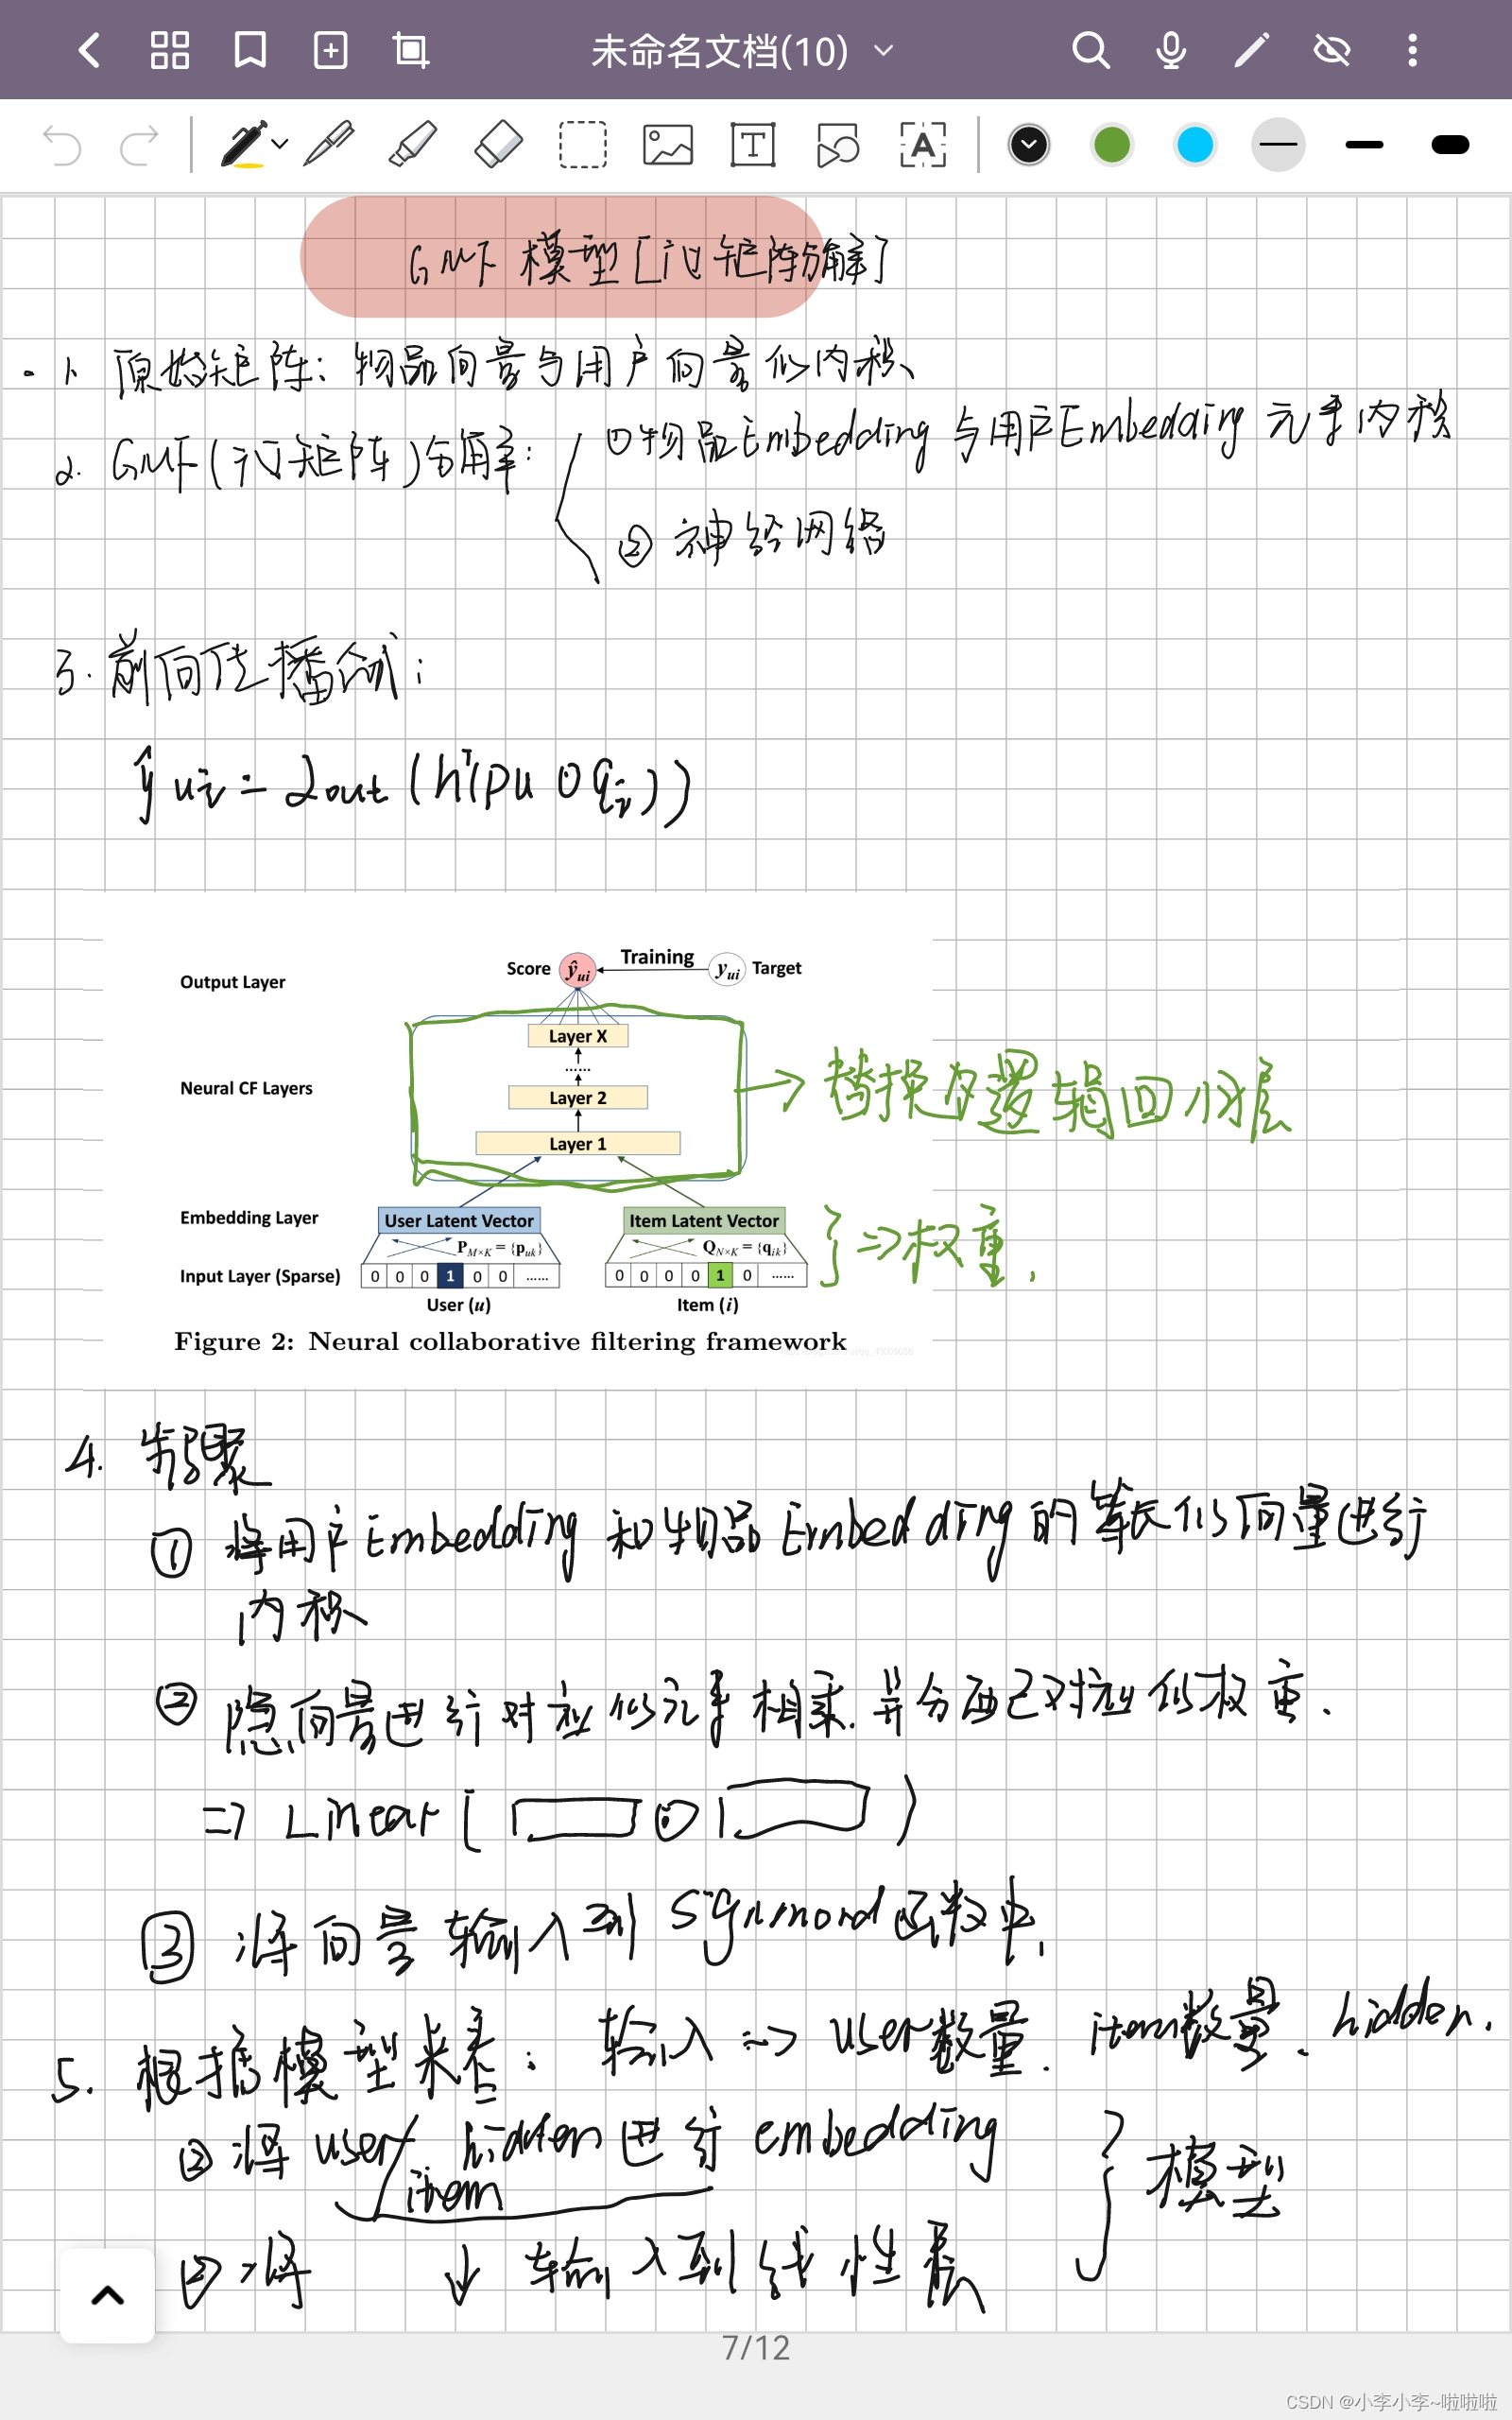 未命名文档(10)
GMF 模型[广义矩阵分解]
1. 原始矩阵: 物品向量与用户向量做内积、
2. GMF(广义矩阵)分解: ①物品Embedding 与用户Embedding 元素内积
② 神经网络
3. 前向传播公式:
ŷui = αout (hᵀ(pu ⊙ qi))
Output Layer
Score ŷui Training yui Target
Neural CF Layers
Layer X
......
Layer 2
Layer 1
→ 替换为逻辑回归层
Embedding Layer
User Latent Vector Item Latent Vector
P M×K = {puk} Q N×K = {qik}
} ⇒ 权重.
Input Layer (Sparse)
0 0 0 1 0 0 ...... 0 0 0 0 1 0 ......
User (u) Item (i)
Figure 2: Neural collaborative filtering framework
4. 步骤
① 将用户Embedding 和物品Embedding的等长的向量进行
内积
② 隐向量进行对应的元素相乘.并分配已对应的权重.
⇒ Linear( ⊙ )
③ 将向量输入到 Sigmoid函数中.
5. 根据模型来看: 输入 ⇒ user数量. item数量. hidden.
② 将 user/item hidden进行 embedding
② 将 ↓ 输入到线性层
} 模型
7/12
CSDN @小李小李~啦啦啦